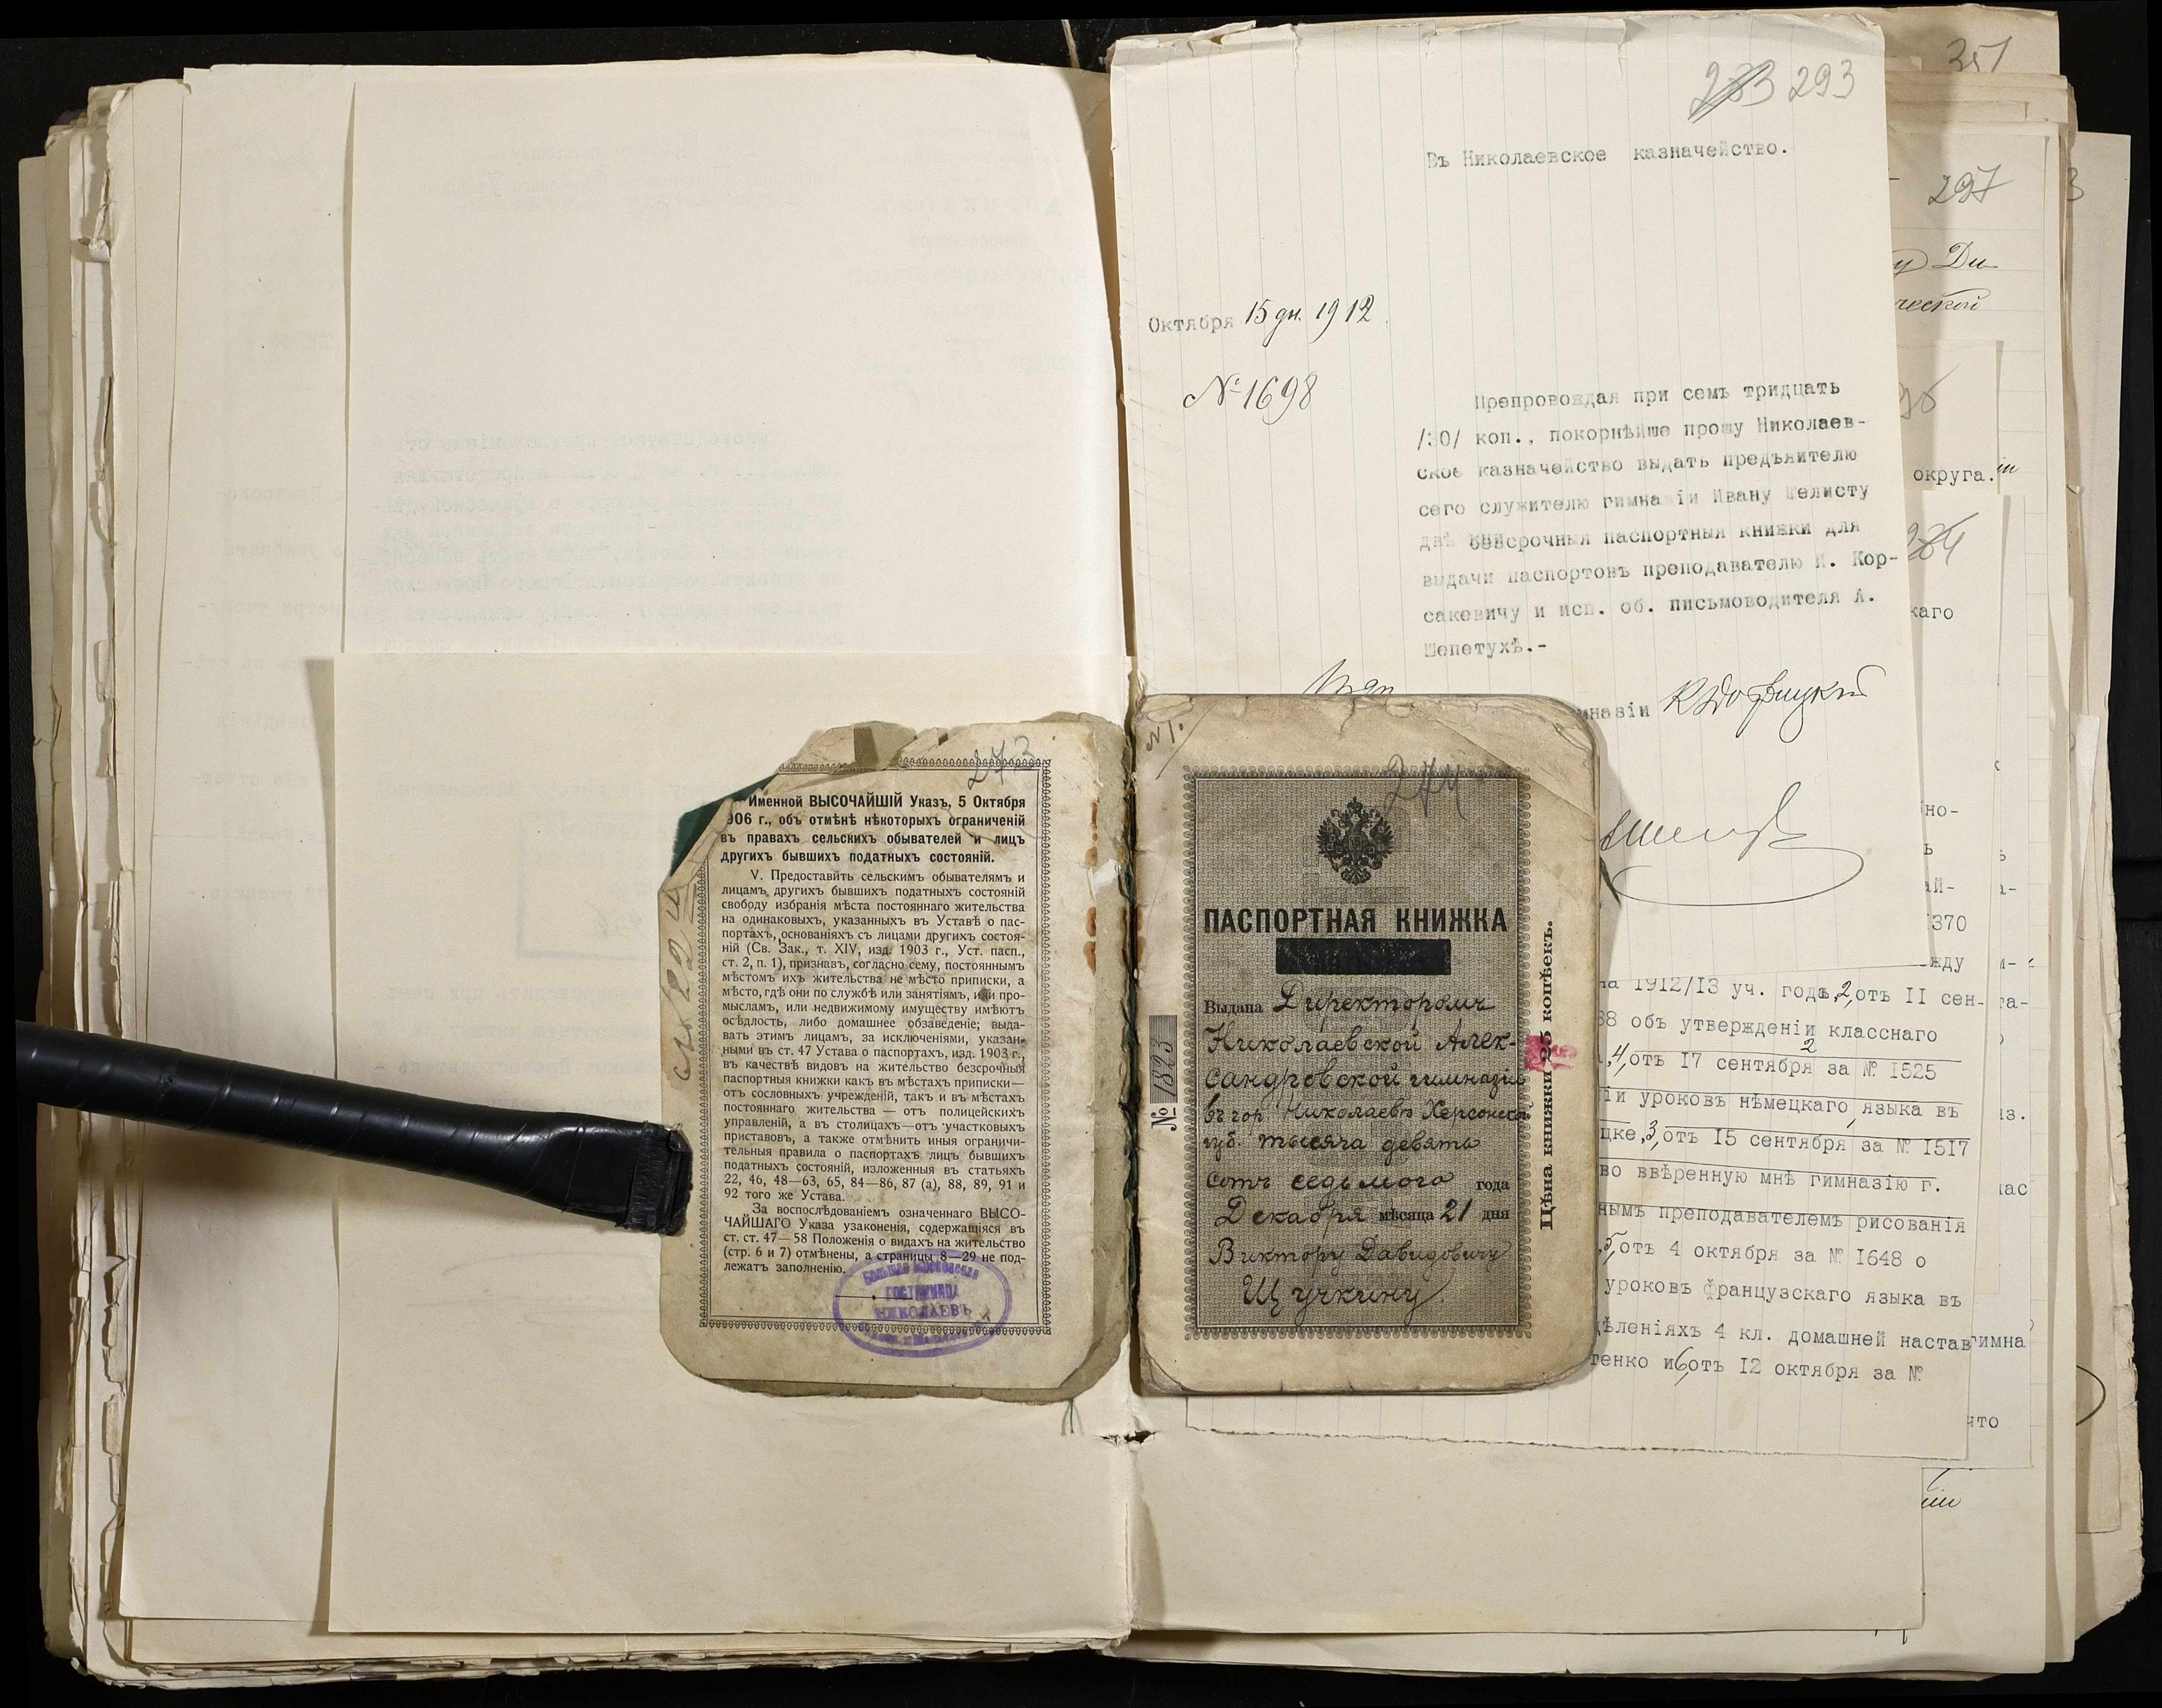 273
Именной ВЫСОЧАЙШІЙ Указъ, 5 Октября
906 г., объ отмѣнѣ нѣкоторыхъ ограниченій
въ правахъ сельскихъ обывателей и лицъ
другихъ бывшихъ податныхъ состояній.
V. Предоставить сельскимъ обывателямъ и
лицамъ другихъ бывшихъ податныхъ состояній
свободу избранія мѣста постояннаго жительства
на одинаковыхъ, указанныхъ въ Уставѣ о пас-
портахъ, основаніяхъ съ лицами другихъ состоя-
ній (Св. Зак., т. XIV, изд. 1903 г., Уст. пасп.,
ст. 2, п. 1), признавъ, согласно сему, постояннымъ
мѣстомъ ихъ жительства не мѣсто приписки, а
мѣсто, гдѣ они по службѣ или занятіямъ, или про-
мысламъ, или недвижимому имуществу имѣютъ
осѣдлость, либо домашнее обзаведеніе; выда-
вать этимъ лицамъ, за исключеніями, указан-
ными въ ст. 47 Устава о паспортахъ, изд. 1903 г.,
въ качествѣ видовъ на жительство безсрочныя
паспортныя книжки какъ въ мѣстахъ приписки—
отъ сословныхъ учрежденій, такъ и въ мѣстахъ
постояннаго жительства — отъ полицейскихъ
управленій, а въ столицахъ—отъ участковыхъ
приставовъ, а также отмѣнить иныя ограничи-
тельныя правила о паспортахъ лицъ бывшихъ
податныхъ состояній, изложенныя въ статьяхъ
22, 46, 48—63, 65, 84—86, 87 (а), 88, 89, 91 и
92 того же Устава.
За воспослѣдованіемъ означеннаго ВЫСО-
ЧАЙШАГО Указа узаконенія, содержащіяся въ
ст. ст. 47—58 Положенія о видахъ на жительство
(стр. 6 и 7) отмѣнены, а страницы 8—29 не под-
лежатъ заполненію.
Большая Московская
ГОСТИННИЦА
НИКОЛАЕВЪ
293
Въ Николаевское казначейство.
Октября 15 дн. 1912
№ 1698
Препровождая при семъ тридцать
/30/ коп., покорнѣйше прошу Николаев-
ское казначейство выдать предъявителю
сего служителю гимназіи Ивану Шелисту
двѣ безсрочныя паспортныя книжки для
выдачи паспортовъ преподавателю И. Кор-
сакевичу и исп. об. письмоводителя А.
Шепетухѣ.-
мназіи
№ 1.
274
ПАСПОРТНАЯ КНИЖКА
Выдана Директоромъ
Николаевской Алек-
сандровской гимназіи
въ гор. Николаевѣ Херсонской
губ. тысяча девять
сотъ седьмого года
Декабря мѣсяца 21 дня
Виктору Давидовичу
Щучкину
№ 1823
Цѣна книжки 25 копѣекъ.
15
351
297
у Ди-
ческой
округа.
284
каго
но-
ай-
370
жду
на 1912/13 уч. годъ, 2, отъ 11 сен-
88 объ утвержденіи класснаго
, 4, отъ 17 сентября за № 1525
іи уроковъ нѣмецкаго языка въ
цке, 3, отъ 15 сентября за № 1517
во ввѣренную мнѣ гимназію г.
нымъ преподавателемъ рисованія
5, отъ 4 октября за № 1648 о
уроковъ французскаго языка въ
дѣленіяхъ 4 кл. домашней настав
тенко и 6, отъ 12 октября за №
гимна
что